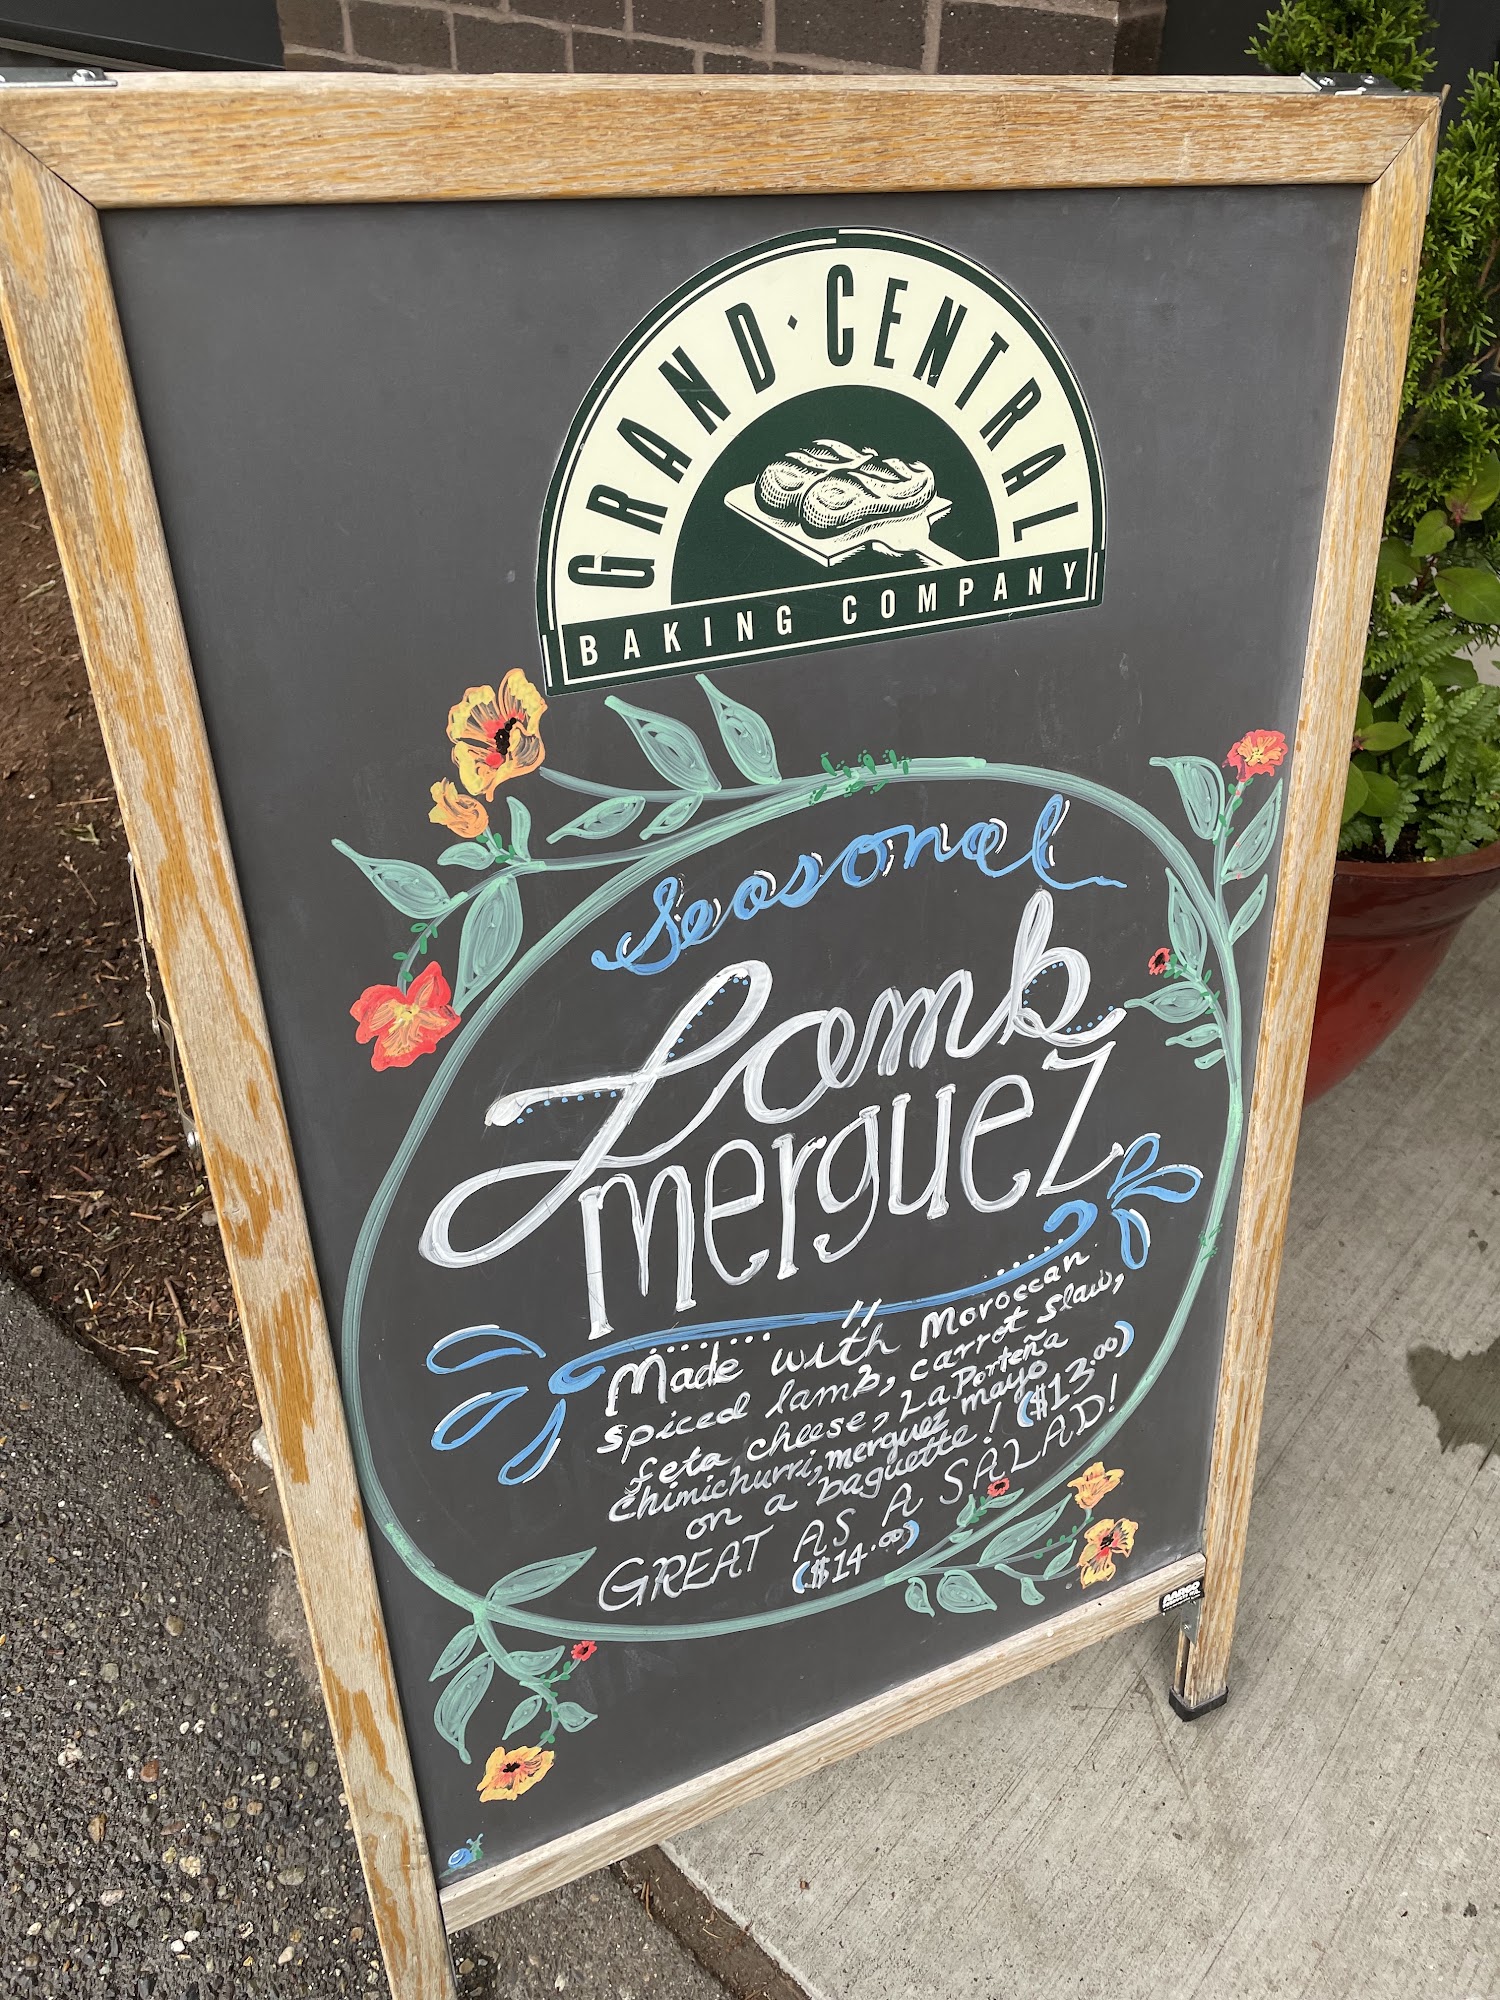 GRAND · CENTRAL
BAKING COMPANY
Seasonal
Lamb
merguez
Made with Moroccan
spiced lamb, carrot slaw,
feta cheese, La Porteña
chimichurri, merguez mayo
on a baguette! ($13.00)
GREAT AS A SALAD!
($14.00)